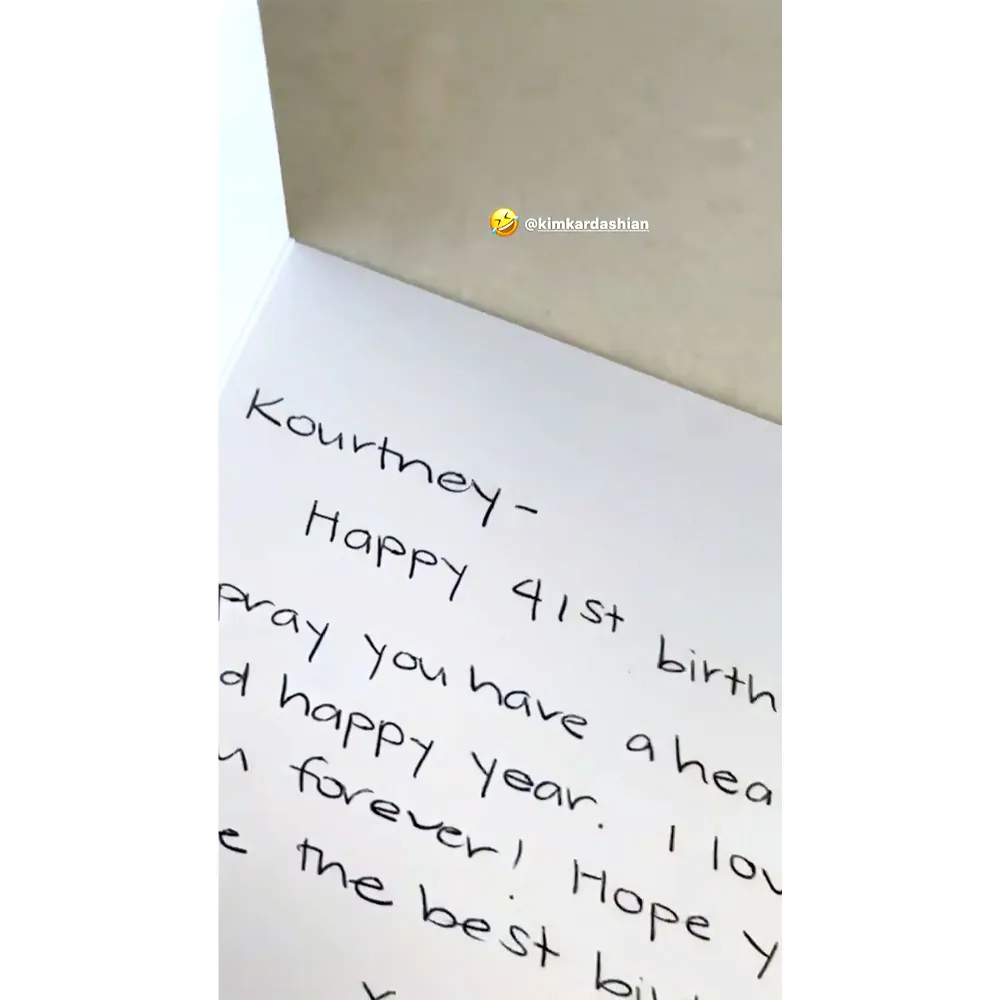 🤣 @kimkardashian
Kourtney-
Happy 41st birth
pray you have a hea
d happy year. I lov
forever! Hope y
e the best bi